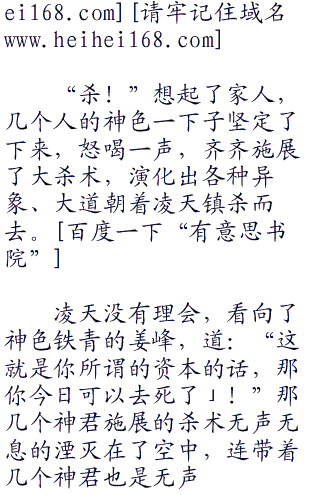 ei168.com][请牢记住域名
www.heihei168.com]
“杀！”想起了家人，
几个人的神色一下子坚定了
下来，怒喝一声，齐齐施展
了大杀术，演化出各种异
象、大道朝着凌天镇杀而
去。[百度一下“有意思书
院”]
凌天没有理会，看向了
神色铁青的姜峰，道：“这
就是你所谓的资本的话，那
你今日可以去死了」！”那
几个神君施展的杀术无声无
息的湮灭在了空中，连带着
几个神君也是无声